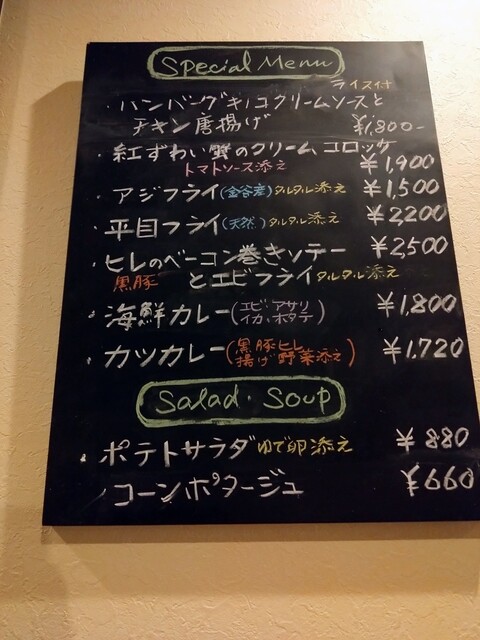 Special Menu
ライス付
・ハンバーグキノコクリームソースと
チキン唐揚げ ¥1,800-
・紅ずわい蟹のクリームコロッケ
トマトソース添え ¥1,900
・アジフライ(金谷産)タルタル添え ¥1,500
・平目フライ(天然)タルタル添え ¥2200
・ヒレのベーコン巻きソテー ¥2,500
黒豚 とエビフライタルタル添え
・海鮮カレー(エビ・アサリ イカ・ホタテ) ¥1,800
・カツカレー(黒豚ヒレ 揚げ野菜添え) ¥1,720
Salad・Soup
・ポテトサラダゆで卵添え ¥880
・コーンポタージュ ¥660